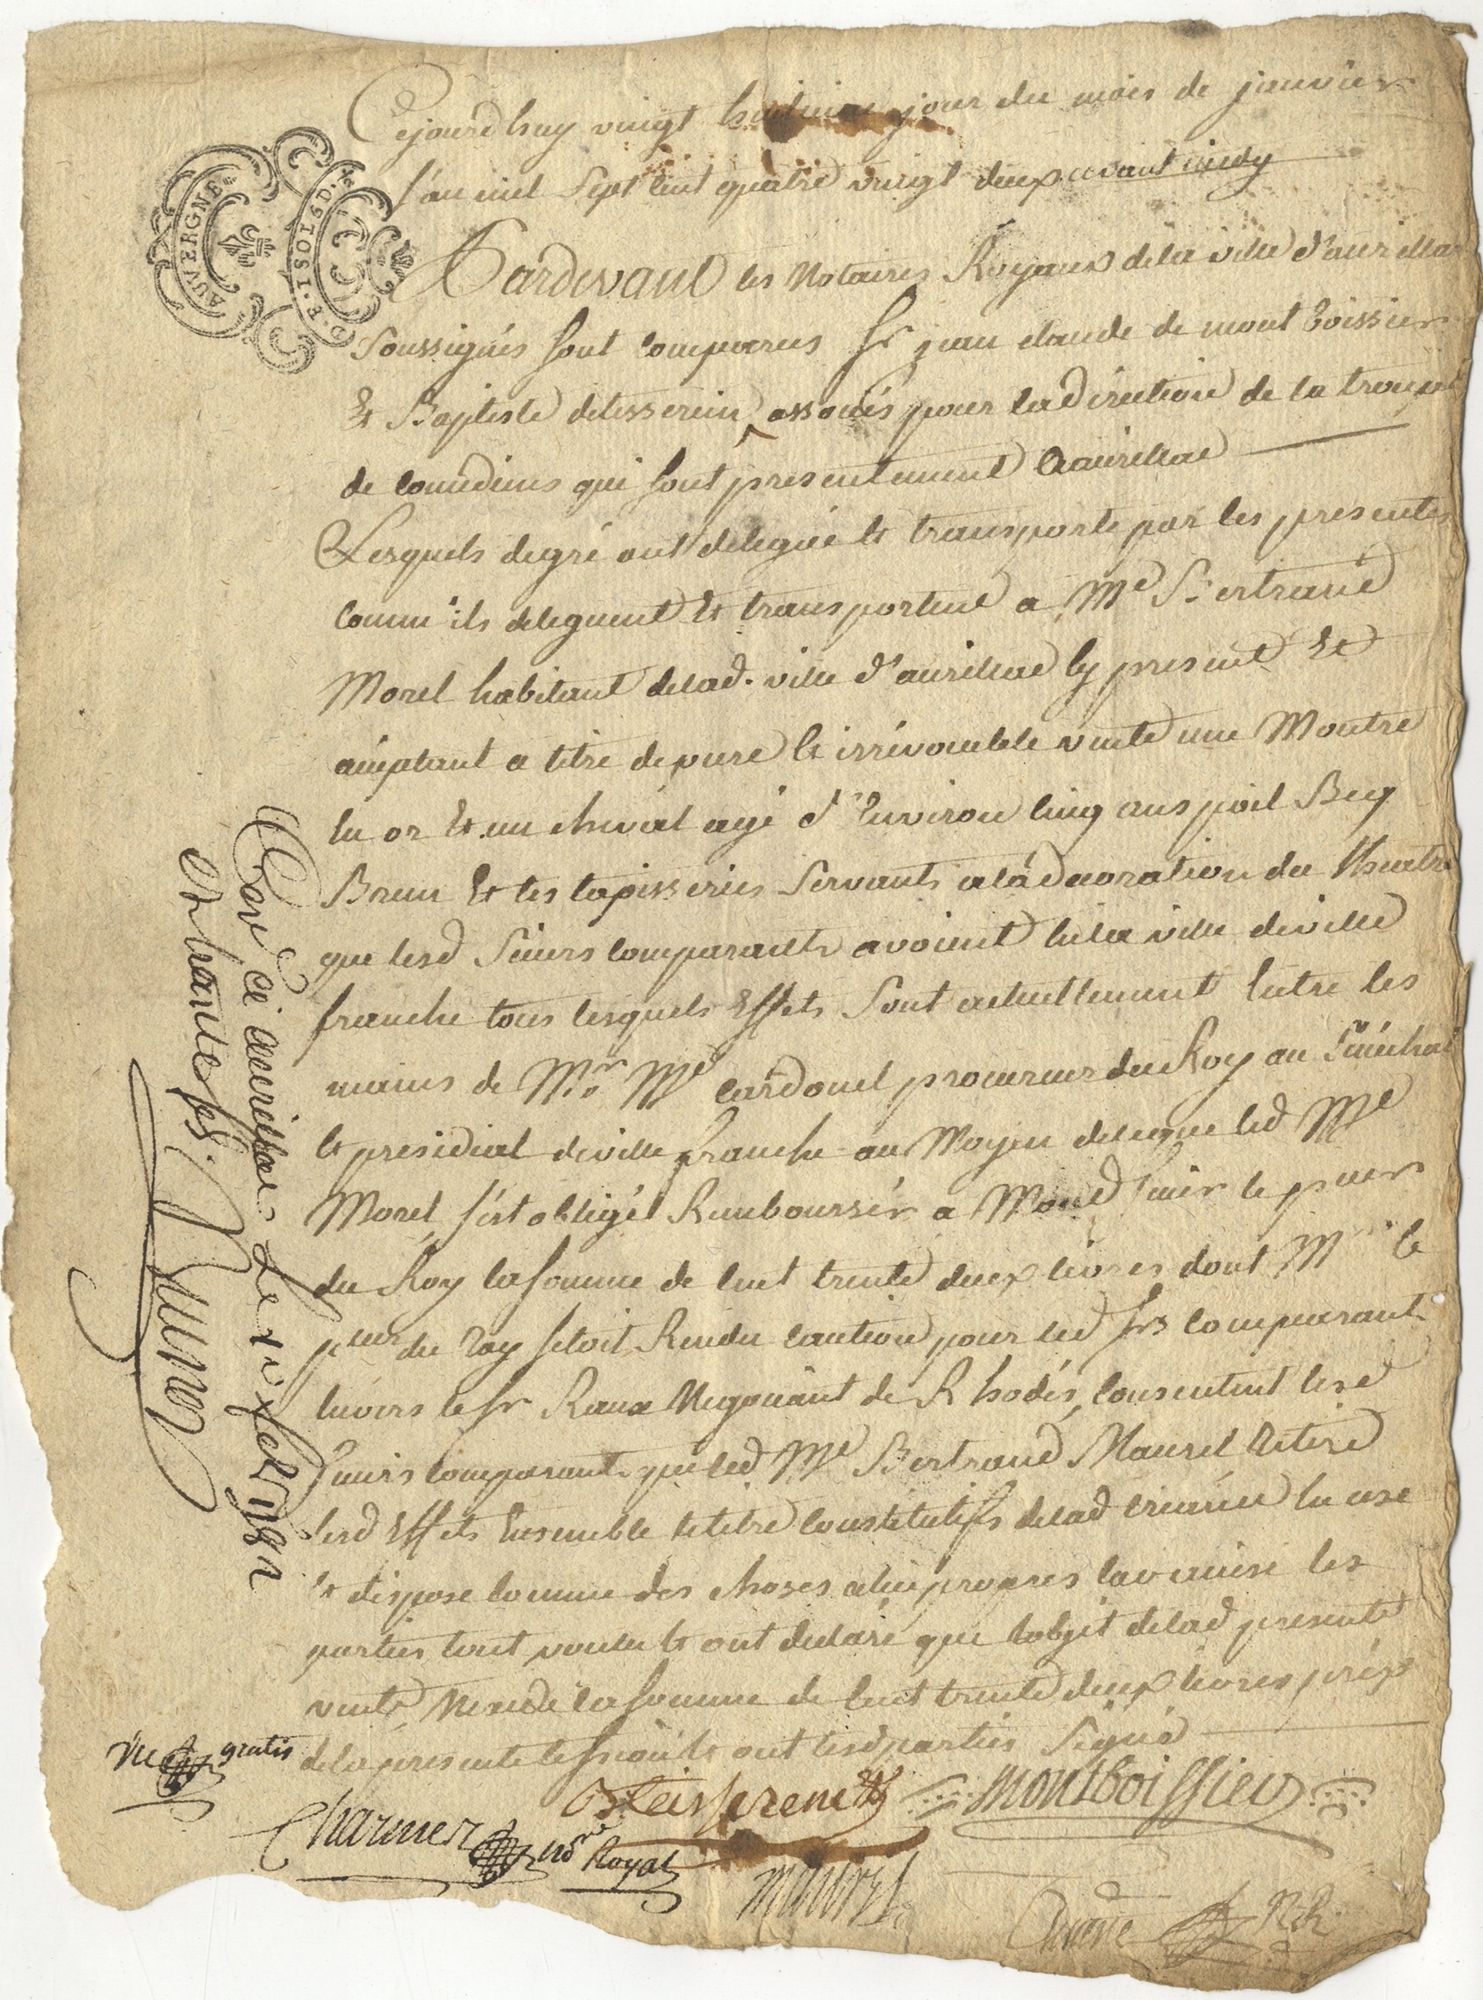 Cejourdhuy vingt huitieme jour du mois de janvier
l'an mil sept cent quatre vingt deux avant midy
Pardevant les Notaires Royaux de la ville d'aurillac
Soussignés sont comparus Sr jean claude de montboissier
Et Baptiste deteisserein, associés pour la direction de la troupe
de comediens qui sont presentement a aurillac
Lesquels de gré ont delegué et transporté par les presentes
comm'ils deleguent et transportent a Me Bertrand
Morel habitant de lad. ville d'aurillac Cy present Et
acceptant a titre de pure et irrévocable vente une Montre
en or et un cheval agé d'Environ cinq ans poil Bey
Brun Et les tapisseries servants a la decoration du Theatre
que lesd sieurs comparants avoient en la ville de ville
franche tous lesquels Effets sont actuellement entre les
mains de Mr. Me Cardonel procureur du Roy au sénéchal
et presidial de ville franche au Moyen de ce que led Me
Morel s'est obligé Rembourser a Mond sieur le pcur
du Roy la somme de cent trente deux livres dont M le
pcur du roy setoit Rendu caution pour led Srs comparant
envers le Sr Raux Negociant de Rhodés, consentent lesd
sieurs comparants que led Me Bertrand Maurel retire
lesd Effets Ensemble le titre constitutifs de lad créance en use
et dispose comme des choses a lui propres la venise les
parties tout voulu et ont declaré que l'objet de lad presente
vente N'excede la somme de cent trente deux livres prix
de la presente cession et ont lesd parties signé
Deteisserene Montboissier
Vu gratis
Charmes nore Royal
maurel
N R
Con ce aurillac le vi feb 1782
et trante sols.
AUVERGNE
D.E. 1 SOL 6 D.